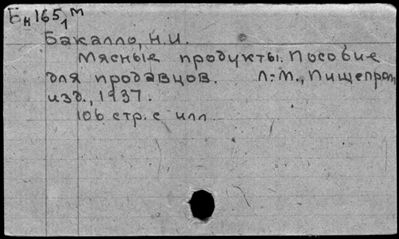 Ен165₁ М
Бакалло, Н.И.
Мясные продукты. Пособие
для продавцов. Л.-М., Пищепром
изд., 1937.
106 стр. с илл